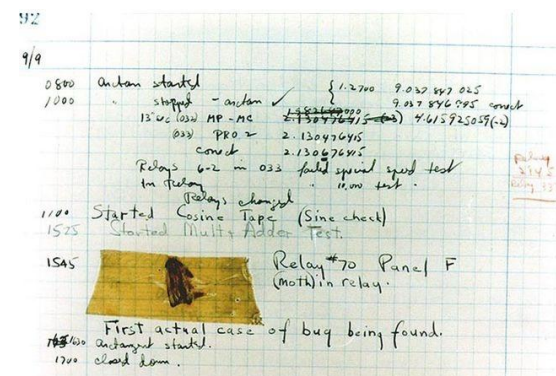 92
9/9
0800 Antan started
1000 " stopped - antan ✓ { 1.2700 9.037 847 025
9.037 846 995 conect
13"uc (032) MP - MC 2.130476415 4.615925059(-2)
(033) PRO 2 2.130476415
conect 2.130676415
Relays 6-2 in 033 failed special speed test
In Relay " 10,000 test.
Relays changed
1100 Started Cosine Tape (Sine check)
1525 Started Mult + Adder Test.
1545 Relay #70 Panel F
(moth) in relay.
First actual case of bug being found.
1630 antangent started.
1700 closed down.